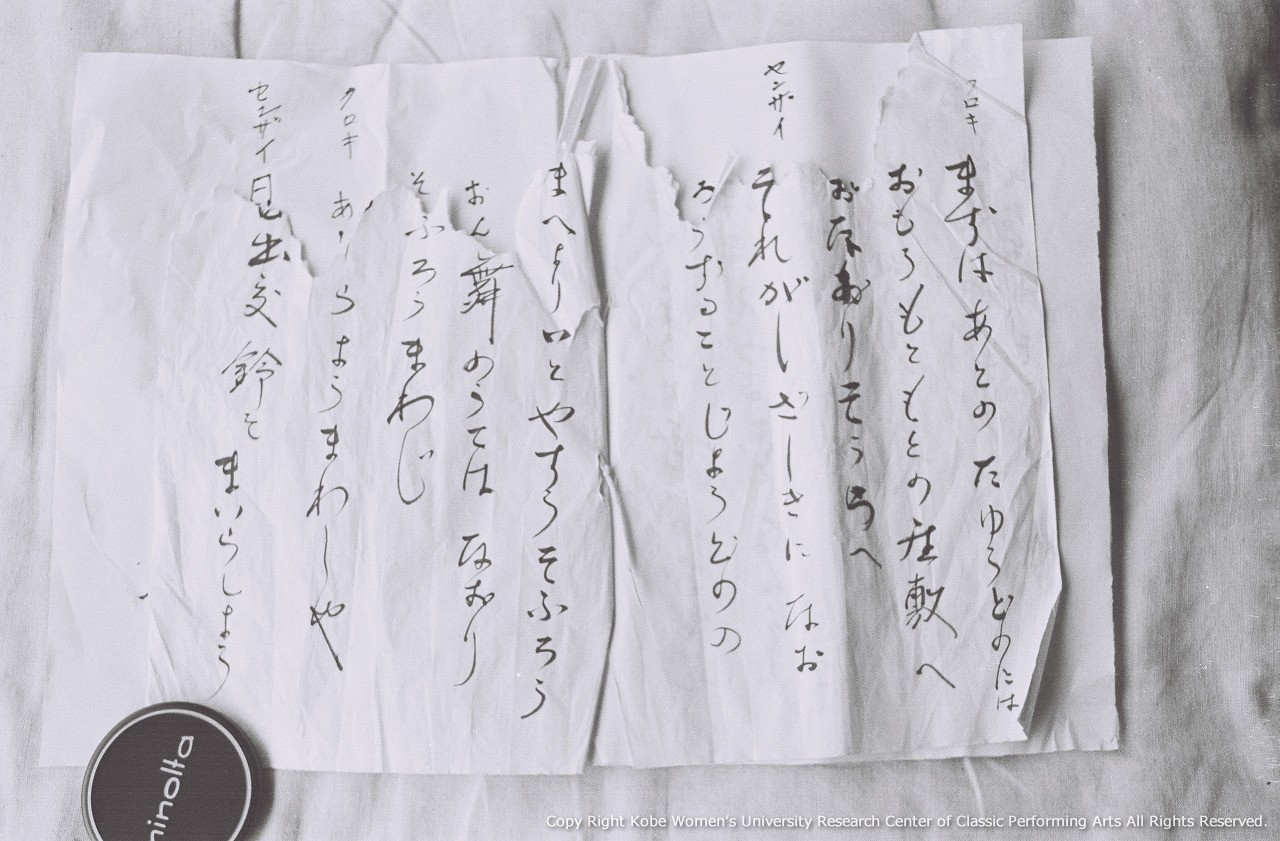 クロキ まずは あとの たゆうどのには
おもうもともとの座敷へ
おなおりそうらへ
センザイ それがしざしきに なお
ろうずることじょうどのの
まへより いとやすうそふろう
おん舞のうては なおり
そふろうまわじ
クロキ あゝらようまわしや
センザイ 見出交 鈴そ まいらしょう
minolta
Copy Right Kobe Women's University Research Center of Classic Performing Arts All Rights Reserved.